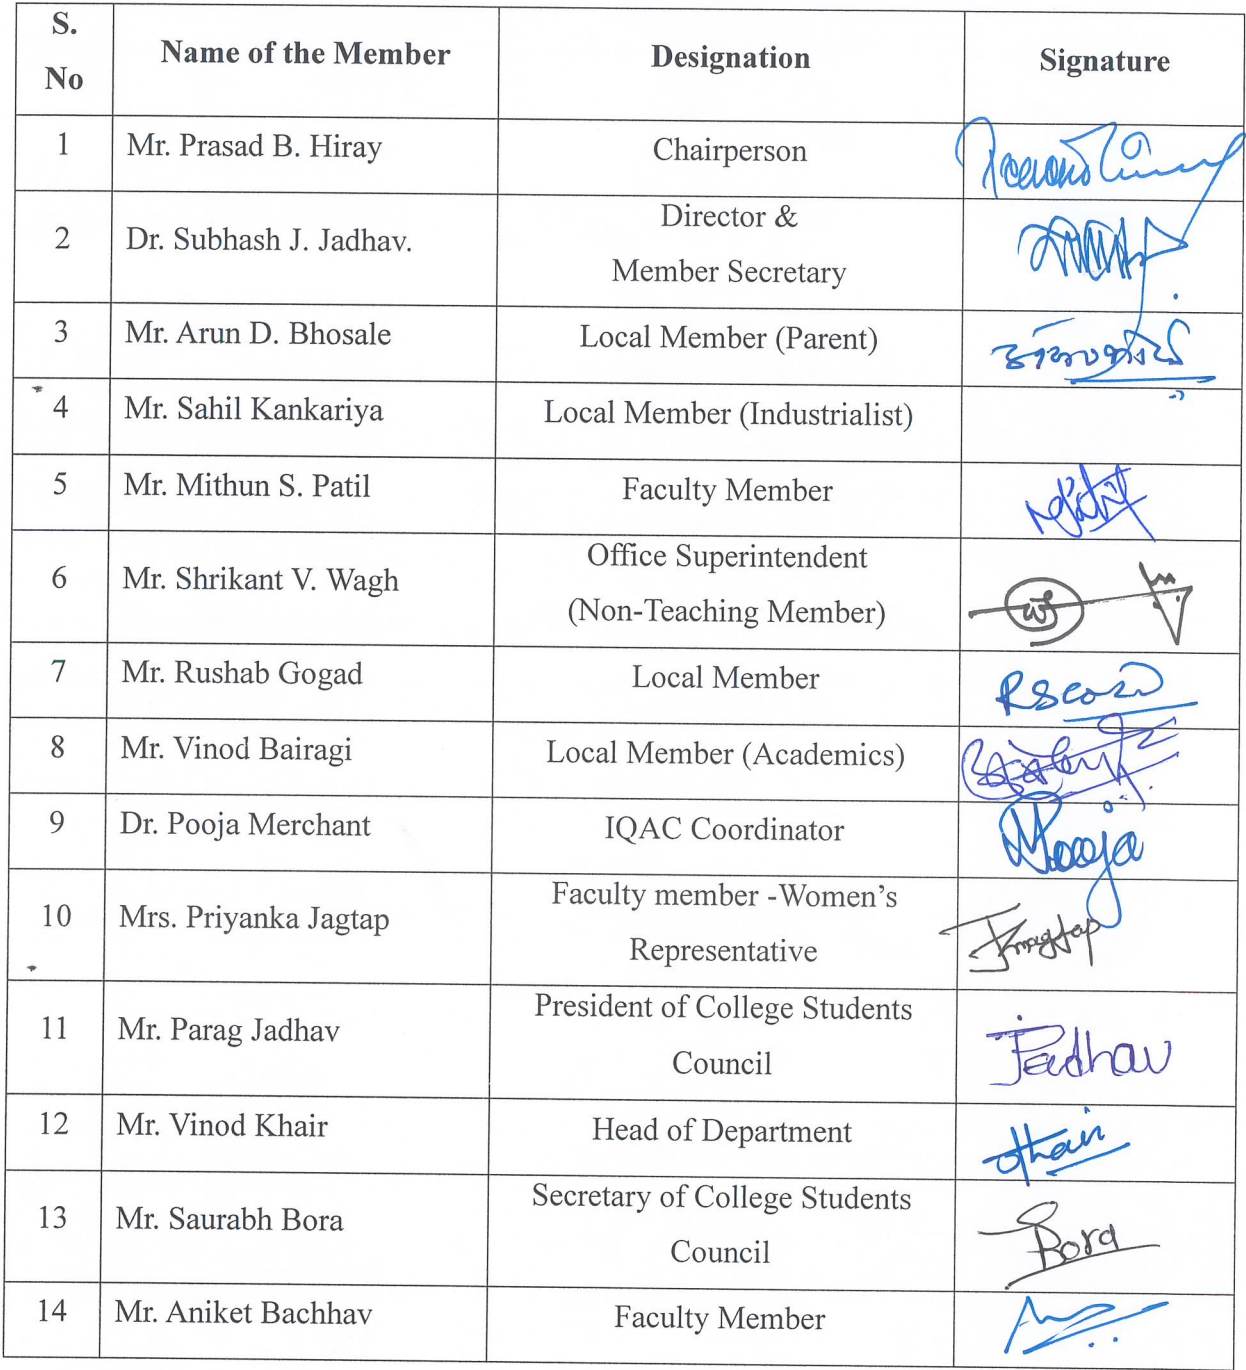 S.
No
Name of the Member
Designation
Signature
1
Mr. Prasad B. Hiray
Chairperson
2
Dr. Subhash J. Jadhav.
Director &
Member Secretary
3
Mr. Arun D. Bhosale
Local Member (Parent)
4
Mr. Sahil Kankariya
Local Member (Industrialist)
5
Mr. Mithun S. Patil
Faculty Member
6
Mr. Shrikant V. Wagh
Office Superintendent
(Non-Teaching Member)
7
Mr. Rushab Gogad
Local Member
8
Mr. Vinod Bairagi
Local Member (Academics)
9
Dr. Pooja Merchant
IQAC Coordinator
Pooja
10
Mrs. Priyanka Jagtap
Faculty member -Women’s
Representative
11
Mr. Parag Jadhav
President of College Students
Council
Jadhav
12
Mr. Vinod Khair
Head of Department
13
Mr. Saurabh Bora
Secretary of College Students
Council
Bora
14
Mr. Aniket Bachhav
Faculty Member